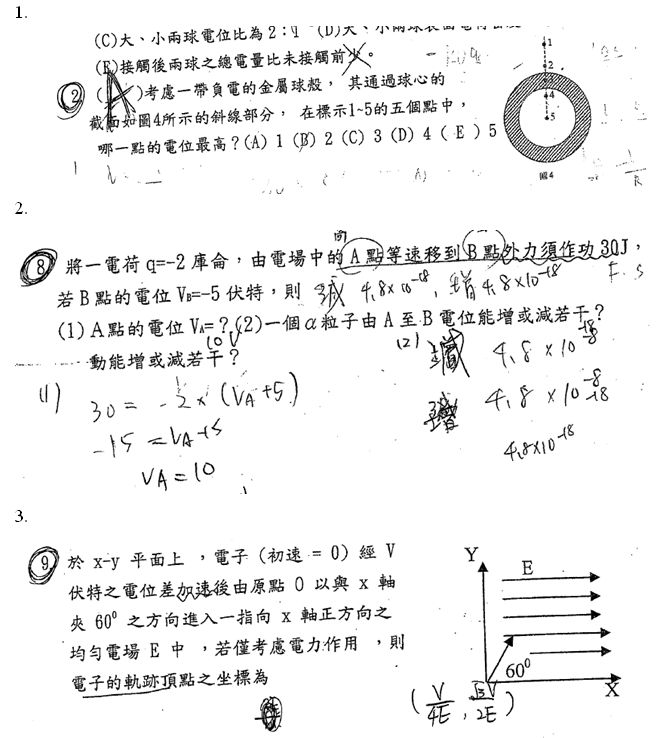 1.
(C)大、小兩球電位比為 2：1
(E)接觸後兩球之總電量比未接觸前少。
2 ( A )考慮一帶負電的金屬球殼，其通過球心的
截面如圖4所示的斜線部分，在標示1~5的五個點中，
哪一點的電位最高？(A) 1 (B) 2 (C) 3 (D) 4 (E) 5
1
2
4
5
圖4
2.
8 將一電荷 q=-2 庫侖，由電場中的 A 點等速移到 B 點外力須作功 30J，
若 B 點的電位 VB=-5 伏特，則
減 4.8×10-18，增 4.8×10-18
(1) A 點的電位 VA=？(2)一個 α 粒子由 A 至 B 電位能增或減若干？
10 V
動能增或減若干？
(1)
30 = -2 × (VA+5)
-15 = VA+5
VA = 10
(2) 減 4.8 × 10
增 4.8 × 10
4.8×10-18
3.
9. 於 x-y 平面上，電子（初速 = 0）經 V
伏特之電位差加速後由原點 O 以與 x 軸
夾 60⁰ 之方向進入一指向 x 軸正方向之
均勻電場 E 中，若僅考慮電力作用，則
電子的軌跡頂點之坐標為
Y
E
60⁰
X
(V/4E, √3V/2E)